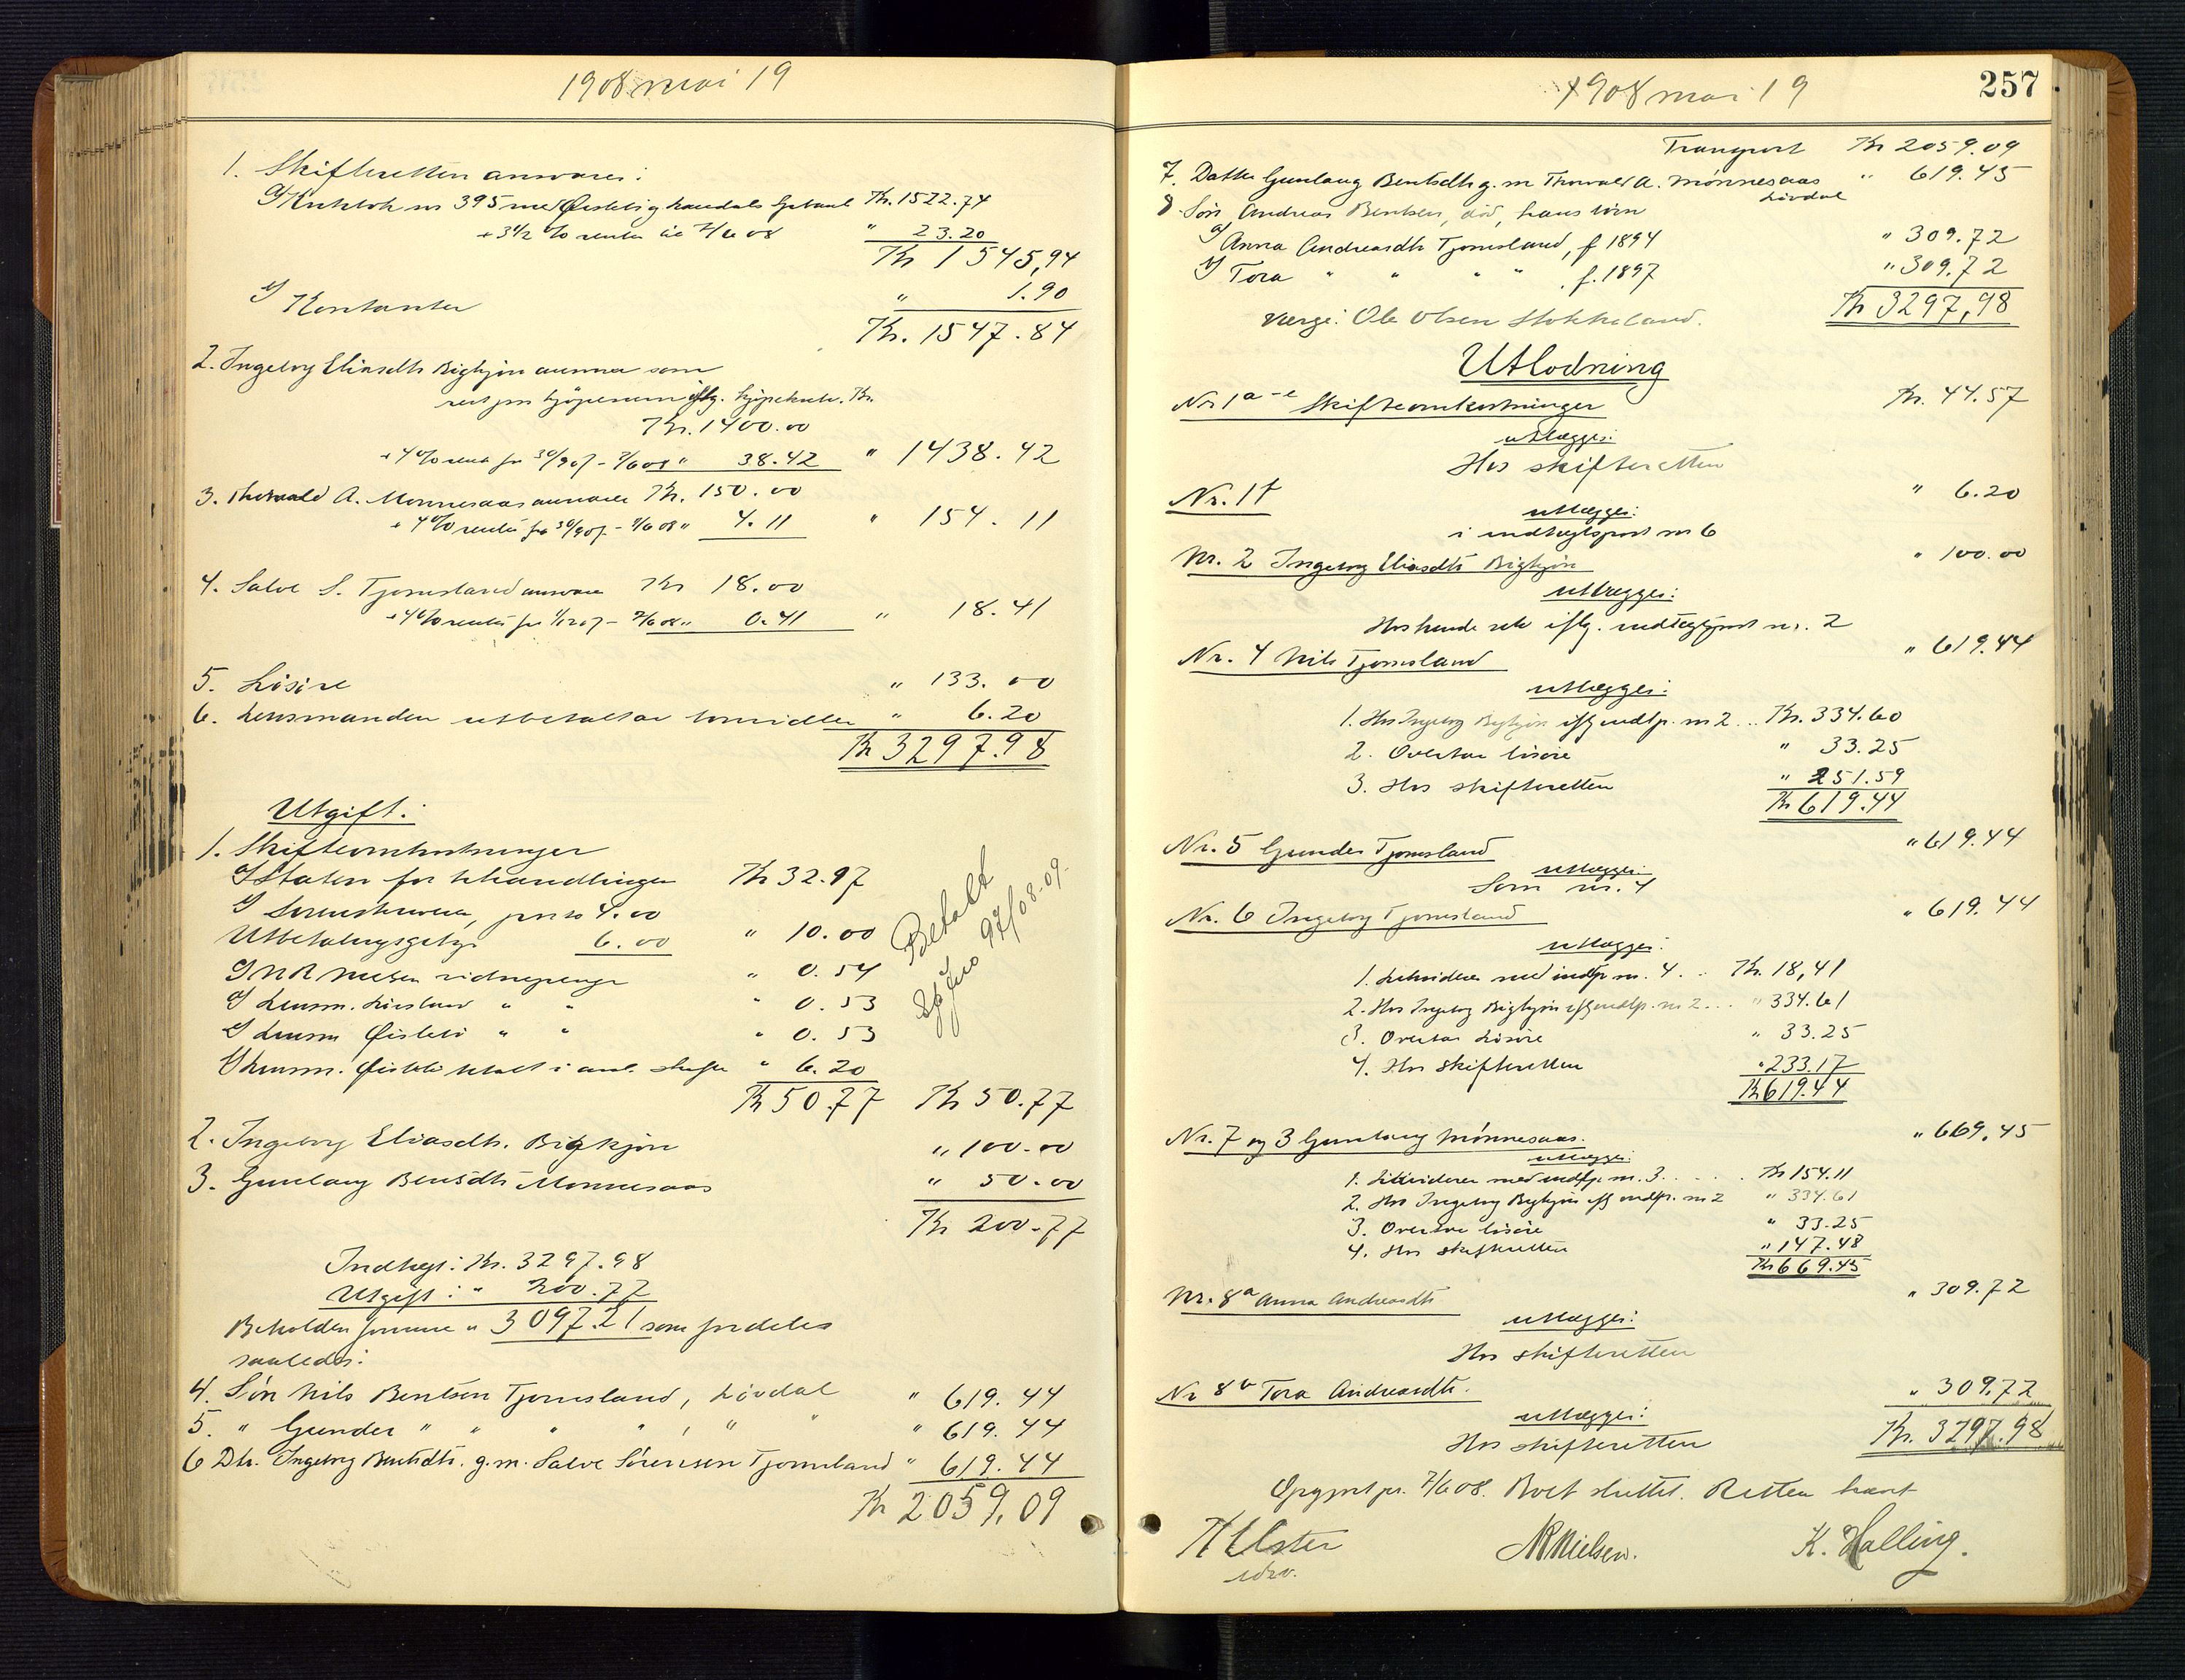 1908 mai 19
1. Skifteretten ansvarer:
a) Kontobok nr 395 med Øislebø g Laudals Spbank Kr. 1522.74
+ 3 1/2 % renter til 7/6 08 " 23.20
Kr 1545,94
b) Kontanter " 1.90
Kr. 1547.84
2. Ingeborg Eliasdtr Bigkjøn som
rest paa kjøpesum iflg. kjøpekontr. Kr.
Kr. 1400.00
+ 4 % rente fra 30/9 07 - 7/6 08 " 38.42 " 1438.42
3. Thorvald A. Monnesaas ansvarer Kr. 150.00
+ 4 % renter fra 30/9 07 - 7/6 08 " 4.11 " 154.11
4. Salve S. Tjomsland ansvarer Kr 18.00
+ 4 % renter fra 1/12 07 - 7/6 08 " 0.41 " 18.41
5. Løsøre " 133.00
6. Lensmanden utbetalt av bomidler " 6.20
Kr 3297.98
Utgift:
1. Skifteomkostninger
a) Staten for behandlingen Kr 32.97
b) Sorenskriveren, porto 4.00
Utbetalingsgebyr 6.00 " 10.00
c) N R Nielsen vidnepenge " 0.54
d) Lensm. " " " 0.53
e) Lensm Øislebø " " " 0.53
f) Lensm. Øislebø betalt i anl. " 6.20
Kr 50.77 Kr 50.77
Betalt
97/08-09.
2. Ingeborg Eliasdtr. Bigkjøn " 100.00
3. Gunlaug Bentsdtr Monnesaas " 50.00
Kr 200.77
Indtægt: Kr. 3297.98
Utgift: " 200.77
Beholden formue " 3097.21 som fordeles
saaledes:
4. Søn Nils Bentsen Tjomsland, Løvdal " 619.44
5. " Gunder " " " , " " " 619.44
6 Dtr. Ingeborg Bentsdtr. g.m. Salve Sørensen Tjomsland " 619.44
Kr 2059,09
1908 mai 19
257
Transport Kr 2059.09
7. Datter Gunlaug Bentsdtr g. m Thorvald A. Monnesaas " 619.45
Løvdal
8. Søn Andreas Bentsen, død, hans børn
a) Anna Andreasdtr Tjomsland, f. 1894 " 309.72
b) Tora " " " " , f. 1897 " 309.72
Kr 3297,98
Verge: Ole Olsen Stokkeland.
Utlodning
Nr 1 a-e Skifteomkostninger Kr. 44.57
utlægges:
Hos skifteretten
Nr. 1f " 6.20
utlægges:
i indtægtspost nr 6
Nr. 2 Ingeborg Eliasdtr Bigkjøn " 100.00
utlægges:
Hos hende selv iflg. indtægtspost nr. 2
Nr. 4 Nils Tjomsland " 619.44
utlægges:
1. Hos Ingeborg Bigkjøn iflg indtp. nr 2 .. Kr. 334.60
2. Overtar løsøre " 33.25
3. Hos skifteretten " 251.59
Kr 619.44
Nr. 5 Gunder Tjomsland " 619.44
utlægges:
Som nr. 4
Nr. 6 Ingeborg Tjomsland " 619.44
utlægges:
1. Likviderer med indtp nr. 4 . . Kr. 18,41
2. Hos Ingeborg Bigkjøn iflg indtp. nr 2 ... " 334.61
3. Overtar løsøre " 33.25
4. Hos skifteretten " 233.17
Kr 619.44
Nr. 7 og 3 Gunlaug Monnesaas. " 669.45
utlægges:
1. Likviderer med indtp. nr. 3 . . . . . Kr 154.11
2. Hos Ingeborg Bigkjøn iflg indtp. nr 2 " 334.61
3. Overtar løsøre " 33.25
4. Hos skifteretten " 147.48
Kr 669.45
Nr. 8a Anna Andreasdtr " 309.72
utlægges:
Hos skifteretten
Nr 8b Tora Andreasdtr. " 309.72
utlægges:
Hos skifteretten Kr. 3297.98
Opgjort pr. 7/6 08. Boet sluttet. Retten hævet
NRNielsen. K. Halling.